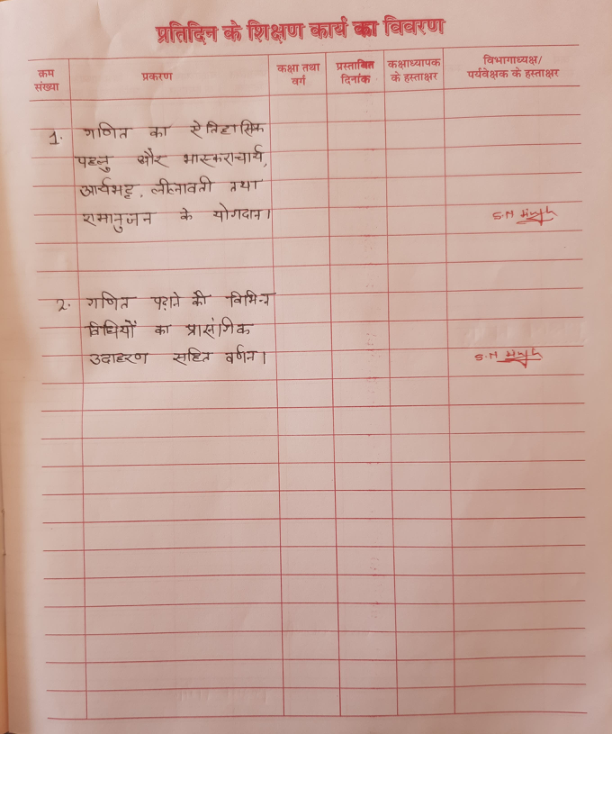 प्रतिदिन के शिक्षण कार्य का विवरण
क्रम संख्या
प्रकरण
कक्षा तथा वर्ग
प्रस्तावित दिनांक
कक्षाध्यापक के हस्ताक्षर
विभागाध्यक्ष/ पर्यवेक्षक के हस्ताक्षर
1. गणित का ऐतिहासिक
पहलु और भास्कराचार्य,
आर्यभट्ट, लीलावती तथा
रामानुजन के योगदान।
2. गणित पढ़ाने की विभिन्न
विधियों का प्रासंगिक
उदाहरण सहित वर्णन।